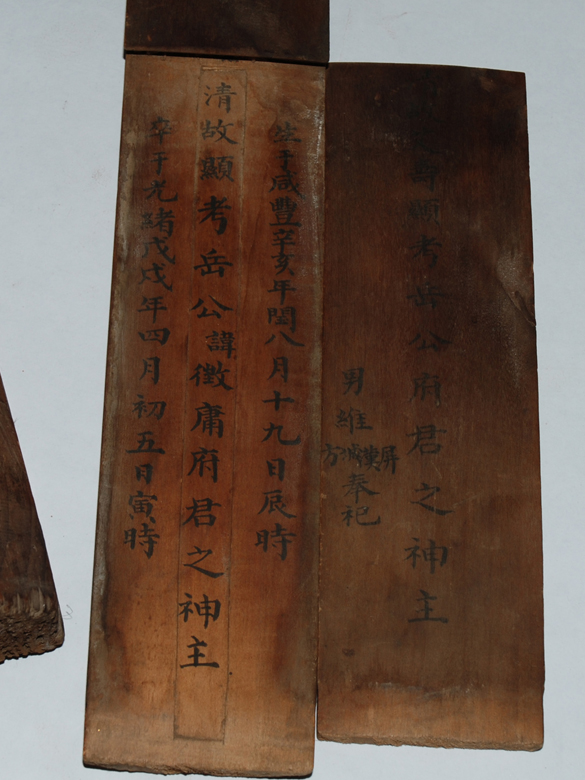 顯考岳公府君之神主
男維屏城方奉祀
生于咸豐辛亥年閏八月十九日辰時
清故顯考岳公諱徵庸府君之神主
卒于光緒戊戌年四月初五日寅時